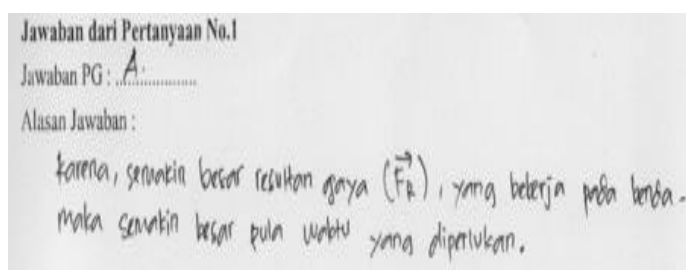 Jawaban dari Pertanyaan No.1
Jawaban PG : ..A...............
Alasan Jawaban :
karena, semakin besar resultan gaya (F⃗R), yang bekerja pada benda.
Maka semakin besar pula waktu yang diperlukan.